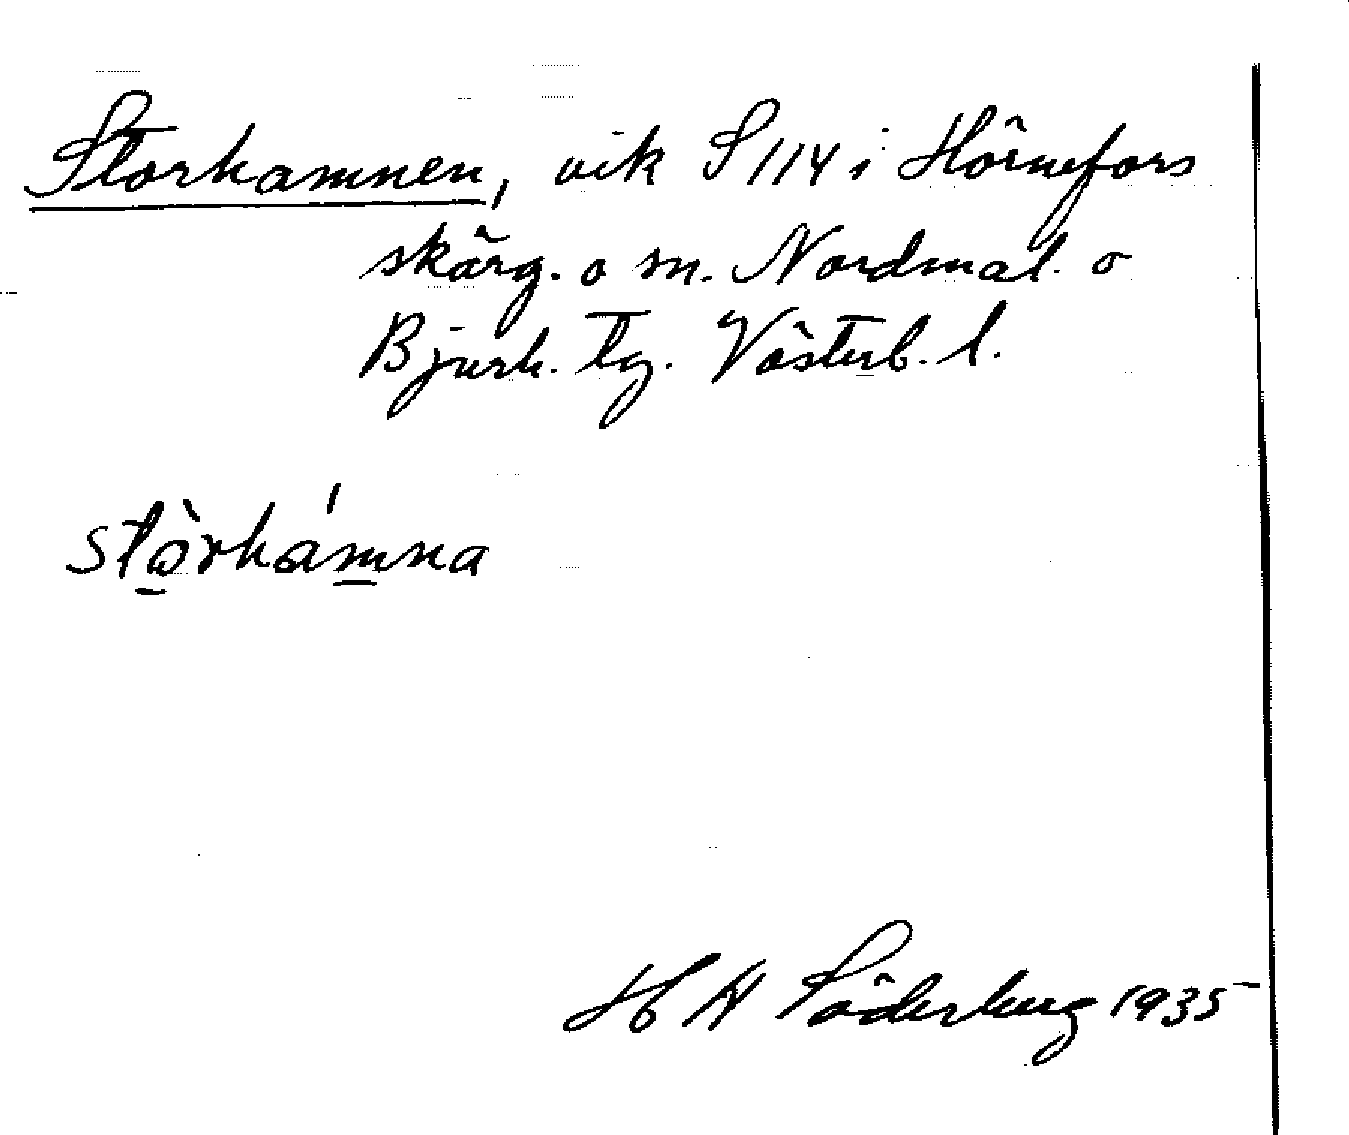 Storhamnen, vik S 114 i Hörnefors
skärg. o sn. Nordmal. o
Bjurh. tg. Västerb. l.
stòrhámna
H A Söderberg 1935